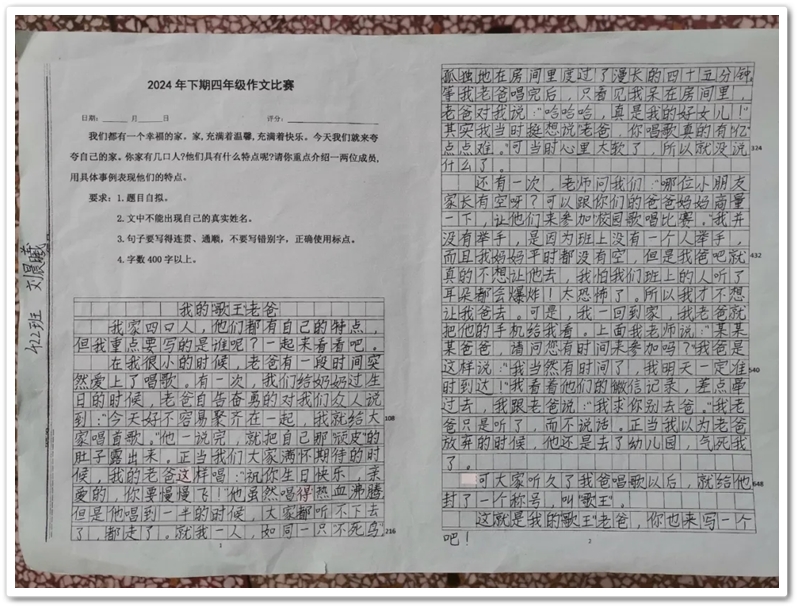 2024年下期四年级作文比赛
日期：______月______日 评分：____________
我们都有一个幸福的家。家，充满着温馨，充满着快乐。今天我们就来夸
夸自己的家。你家有几口人？他们具有什么特点呢？请你重点介绍一两位成员，
用具体事例表现他们的特点。
要求：1.题目自拟。
2.文中不能出现自己的真实姓名。
3.句子要写得连贯、通顺，不要写错别字，正确使用标点。
4.字数400字以上。
422班 刘晨曦
我的"歌王"老爸
我家四口人，他们都有自己的特点，
但我重点要写的是谁呢？一起来看看吧。
在我很小的时候，老爸有一段时间突
然爱上了唱歌。有一次，我们给奶奶过生
日的时候，老爸自告奋勇的对我们众人说
到："今天好不容易聚齐在一起，我就给大
家唱首歌。"他一说完，就把自己那"顽皮"的
肚子露出来。正当我们大家满怀期待的时
候，我的老爸这样唱："祝你生日快乐，亲
爱的，你要慢慢飞！"他虽然唱得热血沸腾
但是他唱到一半的时候，大家都听不下去 108
了，都走了。就我一人，如同一只不死鸟 216
1
孤独地在房间里度过了漫长的四十五分钟。
等我老爸唱完后，只看见我呆在房间里，
老爸对我说："哈哈哈，真是我的好女儿！"
其实我当时挺想说"老爸，你唱歌真的有亿"
点点难。"可当时心里太软了，所以就没说 324
什么了。
还有一次，老师问我们："哪位小朋友
家长有空呀？可以跟你们的爸爸妈妈商量
一下，让他们来参加'校园歌唱比赛。"我并
没有举手，是因为班上没有一个人举手，
而且我妈妈平时都没有空，但是我爸吧就 432
真的不想让他去，我怕我们班上的人听了
耳朵都会爆炸！太恐怖了。所以我才不想
让我爸去。可是，我一回到家，我老爸就
把他的手机给我看。上面我老师说："某某
某爸爸，请问您有时间来参加吗？"我爸是
这样说："我当然有时间了，我明天一定准 540
时到达！"我看着他们的微信记录，差点晕
过去，我跟老爸说："我求你别去爸。"我老
爸只是听了，而不说话。正当我以为老爸
放弃的时候，他还是去了幼儿园，气死我
了。
可大家听久了我爸唱歌以后，就给他 648
封了一个称号，叫"歌王"。
这就是我的"歌王"老爸，你也来写一个
吧！
2